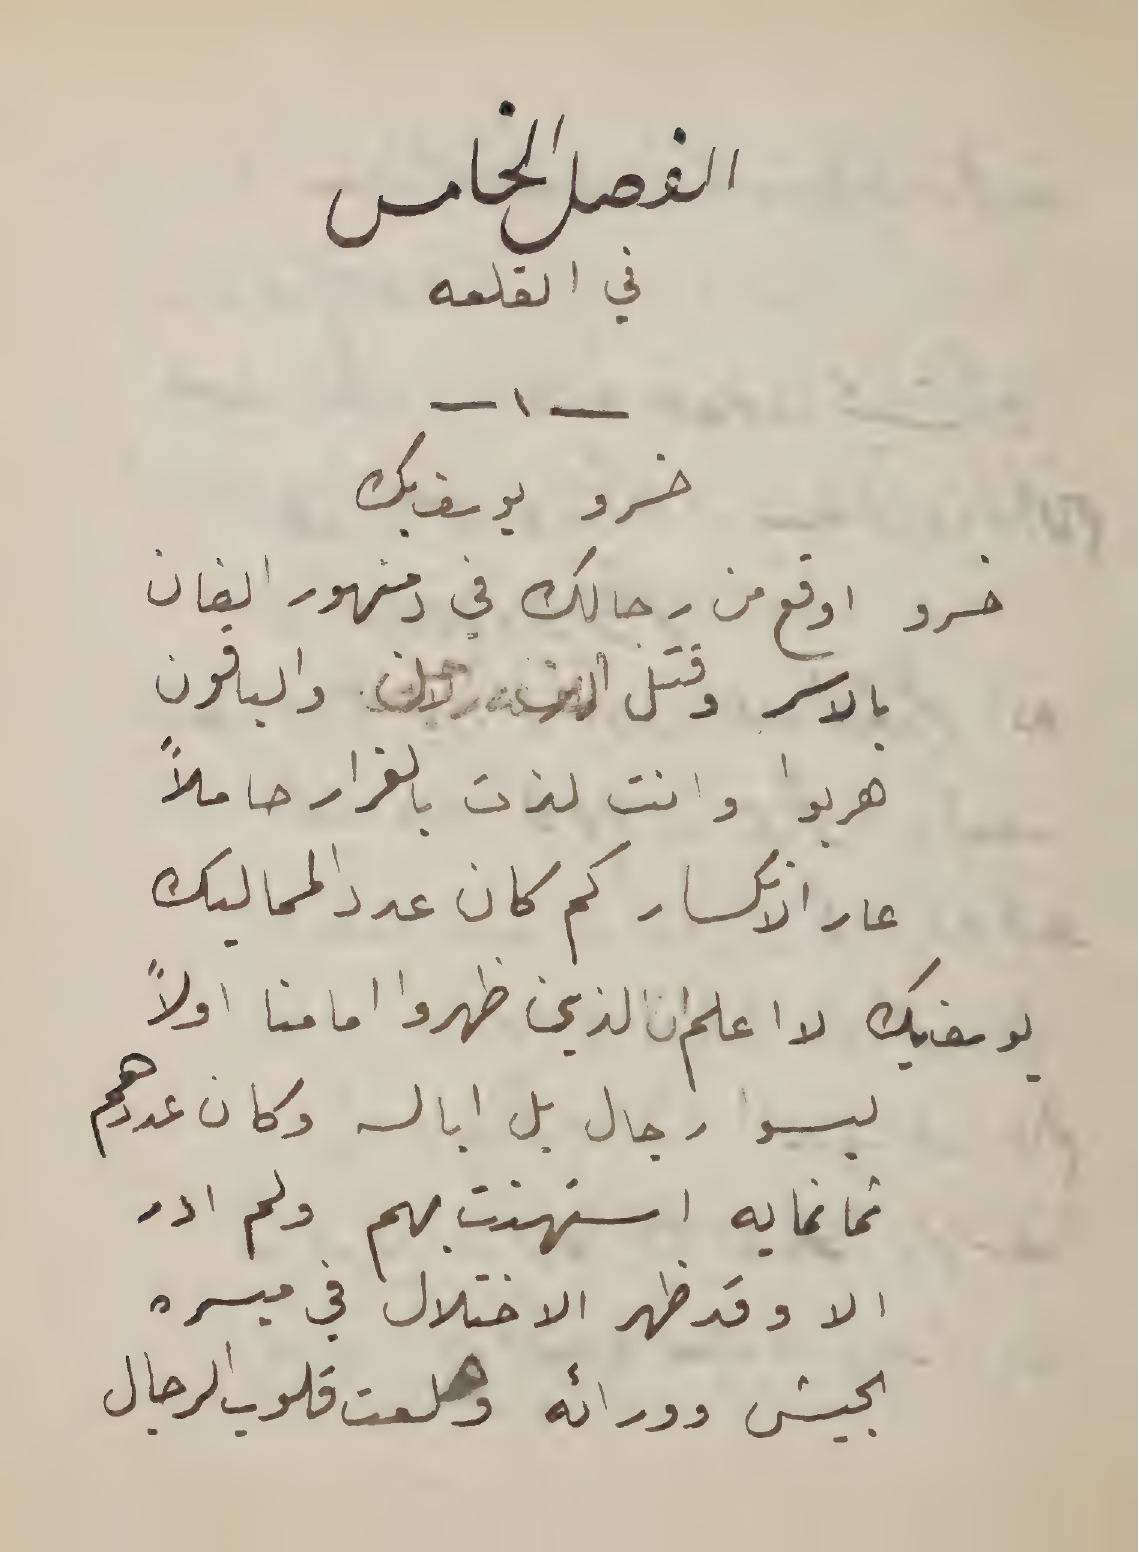 الفصل الخامس
في القلعه
— ١ —
خسرو يوسف بك
خسرو اوقع من رجالك في دمنهور الفان
بالاسر وقتل والباقون
هربوا وانت لذت بالفرار حاملاً
عار الانكسار كم كان عدد المماليك
يوسف بك لا اعلم ان الذين ظهروا امامنا اولاً
ليسوا رجال بل ابالسه وكان عددهم
ثمانمايه استهنت بهم ولم ادر
الا وقد ظهر الاختلال في ميسره
الجيش وورائه وهلعت قلوب الرجال